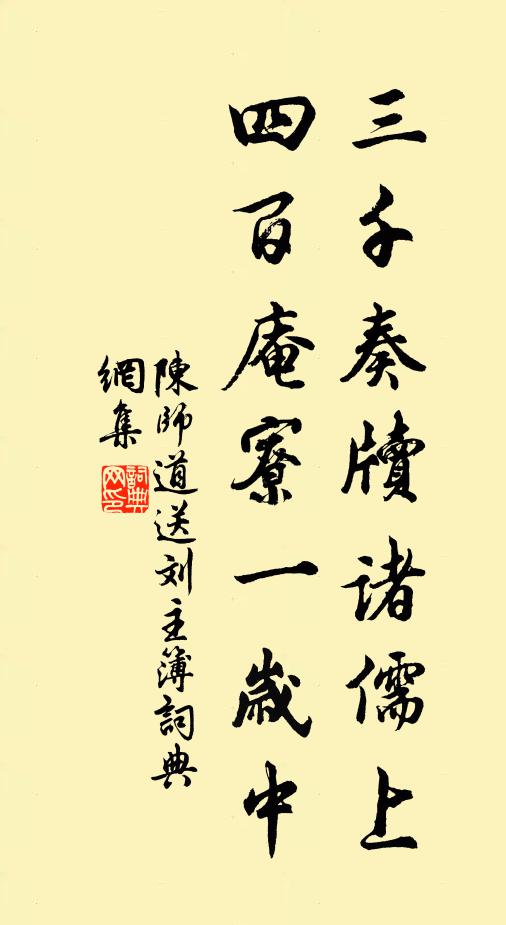 三千奏牘诸儒上
四百庵寮一歲中
陳師道送刘主簿詞典
網集
詞典
网印